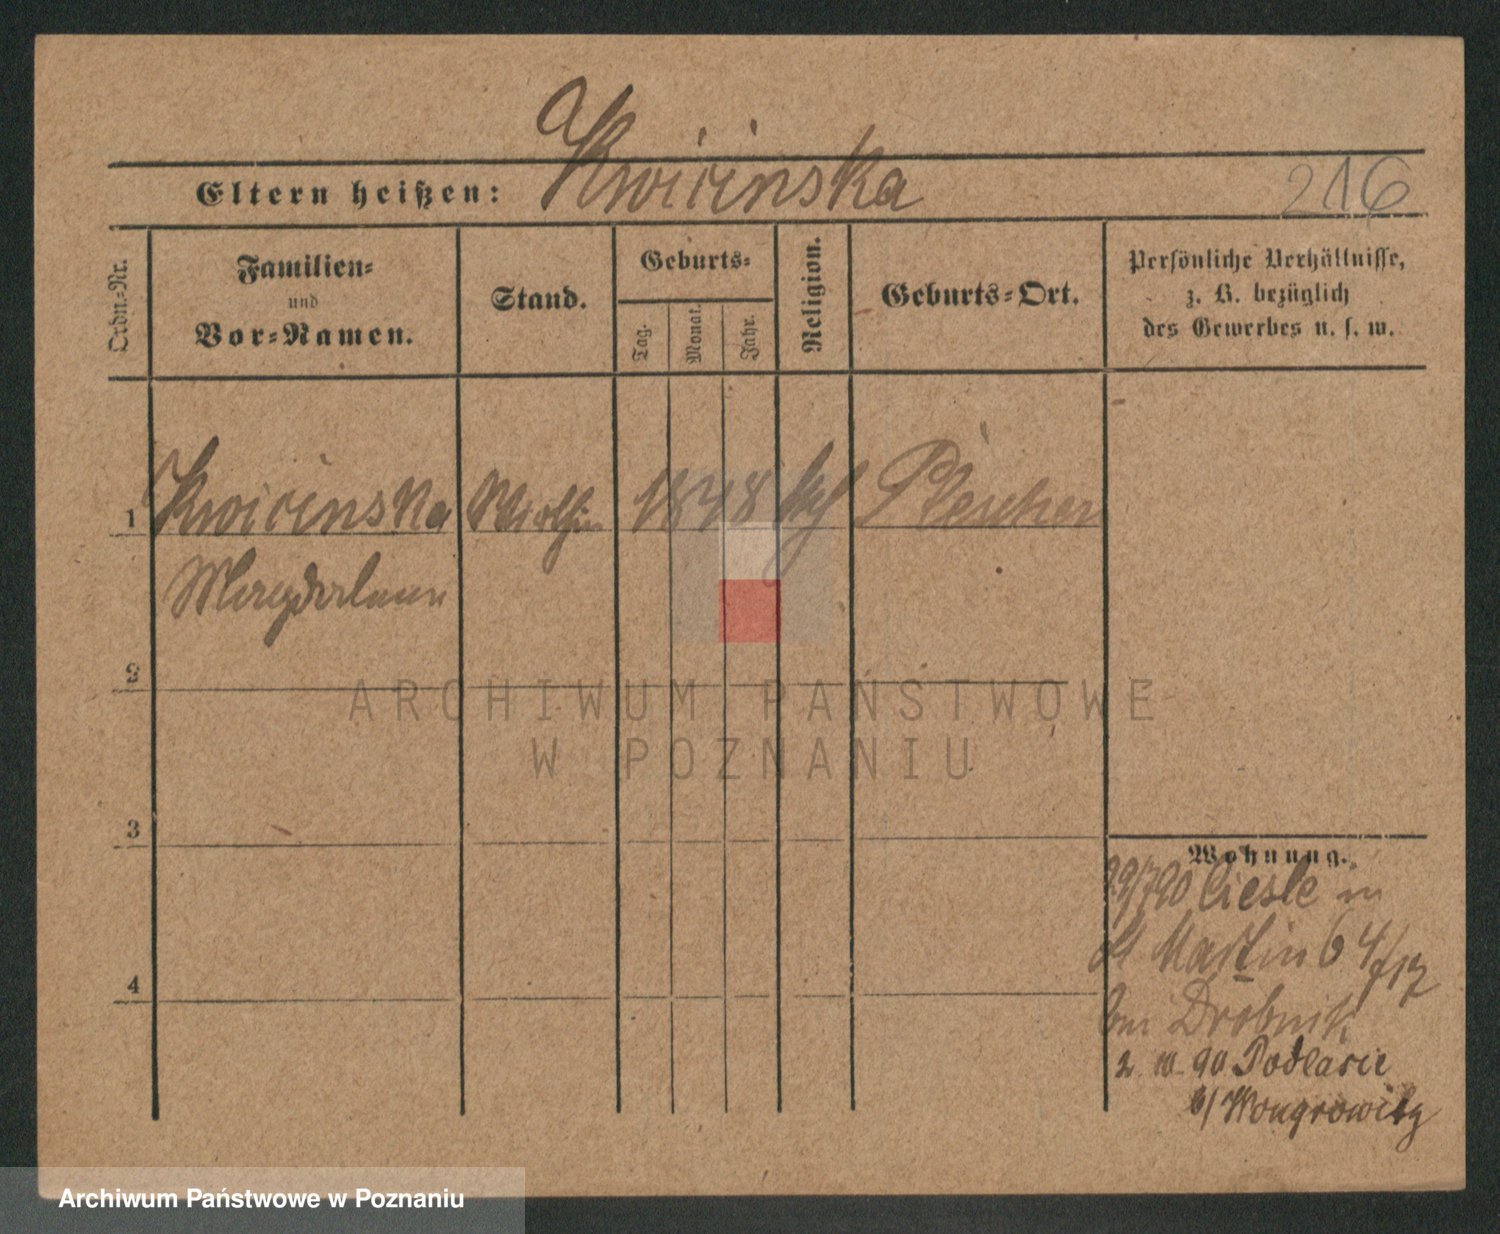 Kwicinska
Eltern heißen:
216
Ordn.-Nr.
Familien-
und
Vor-Namen.
Stand.
Geburts-
Tag.
Monat.
Jahr.
Religion.
Geburts-Ort.
Persönliche Verhältnisse,
z. B. bezüglich
des Gewerbes u. s. w.
1
Kwicinska
1848
Pleschen
Magdalena
2
3
4
ARCHIWUM PAŃSTWOWE
W POZNANIU
Wohnung.
29/7 90 Ciesle in
St Martin 6 4/17
bei Drobnik
2 10 90 Podlasie
b/ Wongrowitz
Archiwum Państwowe w Poznaniu